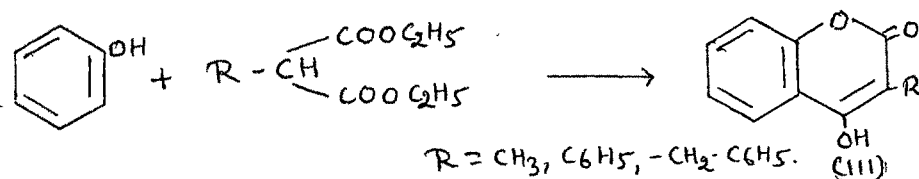 OH
+ R - CH COOC2H5
COOC2H5
O O
R
OH
R = CH3, C6H5, -CH2-C6H5.
(III)